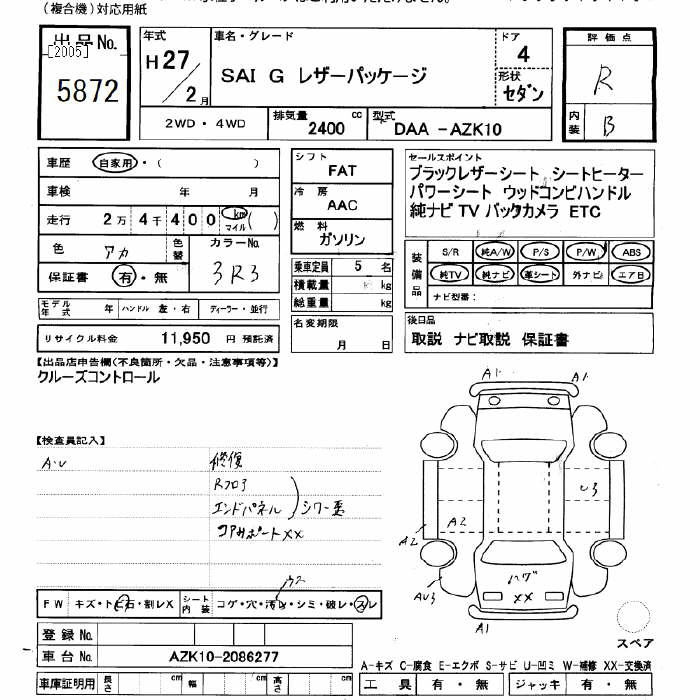 (複合機)対応用紙
出品No.
[2005]
5872
年式
H27/2月
車名・グレード
SAI G レザーパッケージ
ドア
4
形状
セダン
評価点
R
内装
B
2WD・4WD
排気量
2400 cc
型式
DAA -AZK10
車歴 自家用・( )
車検 年 月
走行 2万4千400 km マイル ( )
色 アカ 色替
カラーNo.
3R3
保証書 有・無
シフト
FAT
冷房
AAC
燃料
ガソリン
乗車定員 5 名
積載量 kg
総重量 kg
セールスポイント
ブラックレザーシート シートヒーター
パワーシート ウッドコンビハンドル
純ナビ TV バックカメラ ETC
装備品
S/R 純A/W P/S P/W ABS
純TV 純ナビ 革シート 外ナビ エアB
ナビ型番:
モデル年式 年 ハンドル 左・右 ディーラー・並行
リサイクル料金 11,950 円 預託済
名変期限
月 日
後日品
取説 ナビ取説 保証書
【出品店申告欄(不良箇所・欠品・注意事項等)】
クルーズコントロール
【検査員記入】
A・U
修復
Rフロ3
エンドパネル
シワ一悪
コアサポートXX
A1 A1
U3
A2
A2
AU3
XX
A1
FW キズ・トビ石・割レX シート内装 コゲ・穴・汚レ・シミ・破レ・スレ
登録No.
車台No. AZK10-2086277
車庫証明用 長さ cm 幅 cm 高さ cm
スペア
A-キズ C-腐食 E-エクボ S-サビ U-凹ミ W-補修 XX-交換済
工具 有・無 ジャッキ 有・無